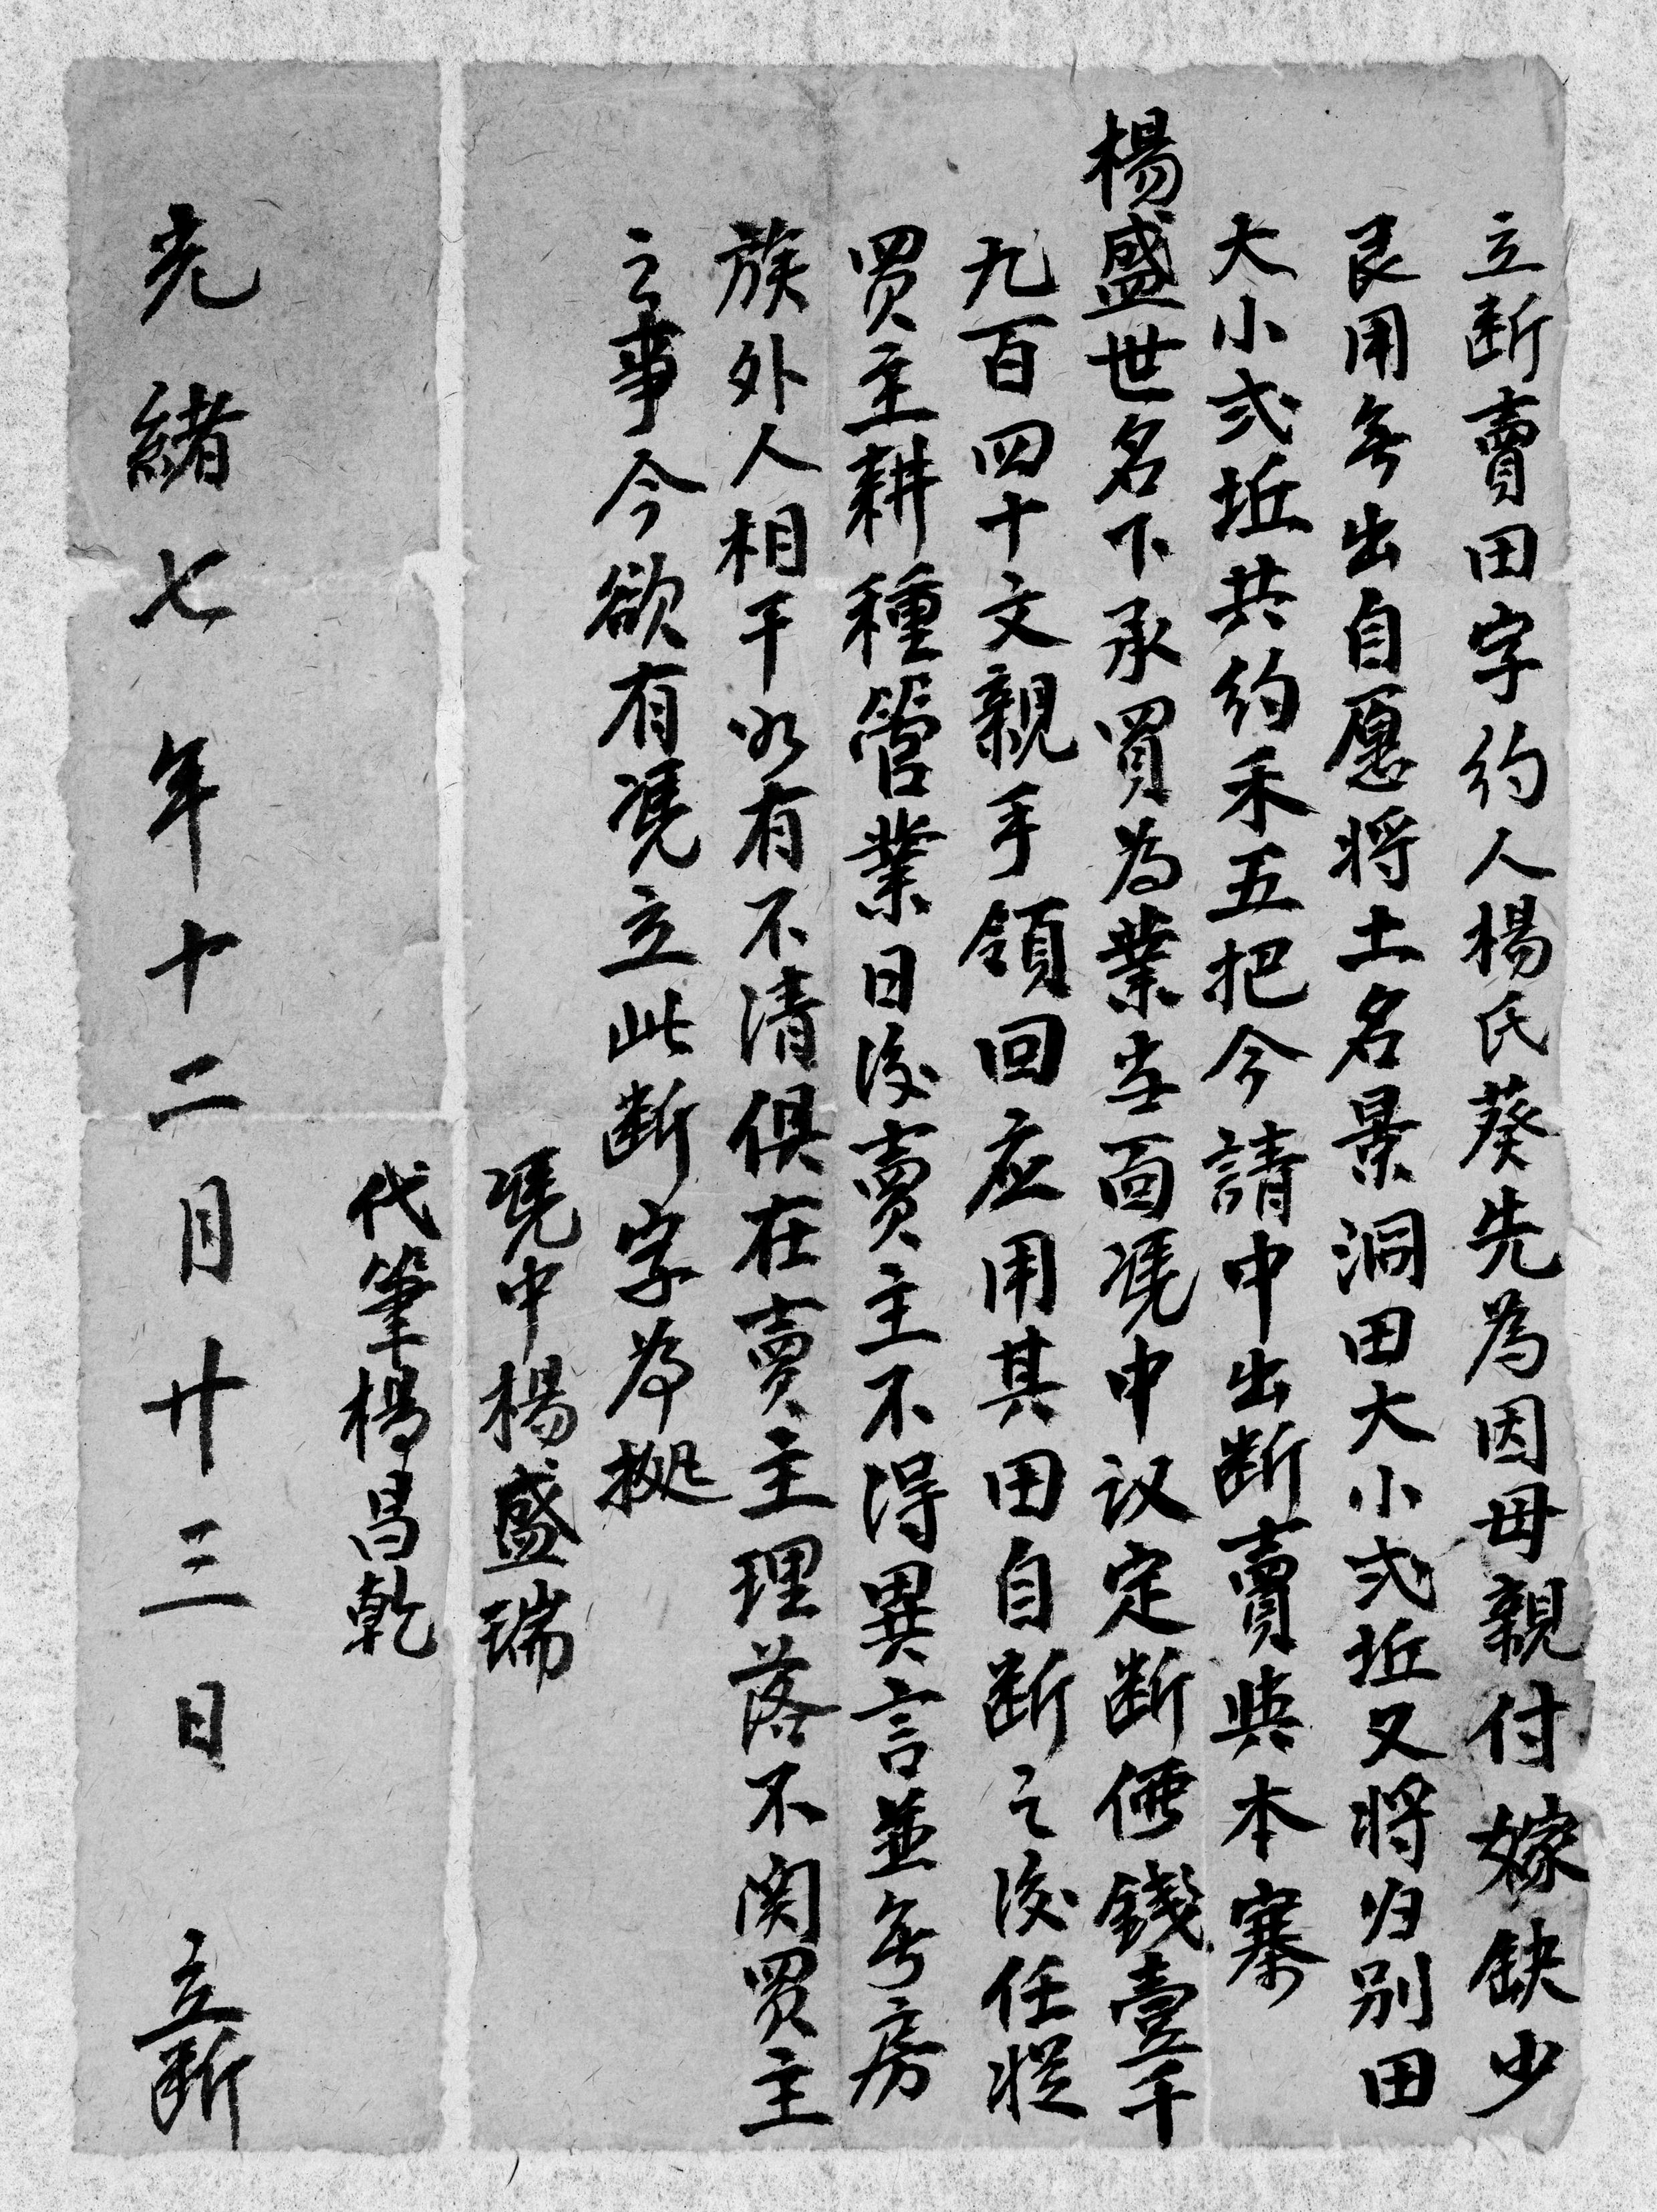 立断賣田字約人楊氏葵先為因母親付嫁缺少
艮用无出自愿将土名景洞田大小弍坵又将归别田
大小弍坵共約禾五把今請中出断賣與本寨
楊盛世名下承買為業当面凴中议定断価錢壹千
九百四十文親手領回应用其田自断之後任從
買主耕種管業日後賣主不得異言並无房
族外人相干如有不清俱在賣主理落不関買主
之事今欲有凴立此断字為拠
凴中楊盛瑞
代筆楊昌乾
光緒七年十二月廿三日 立断